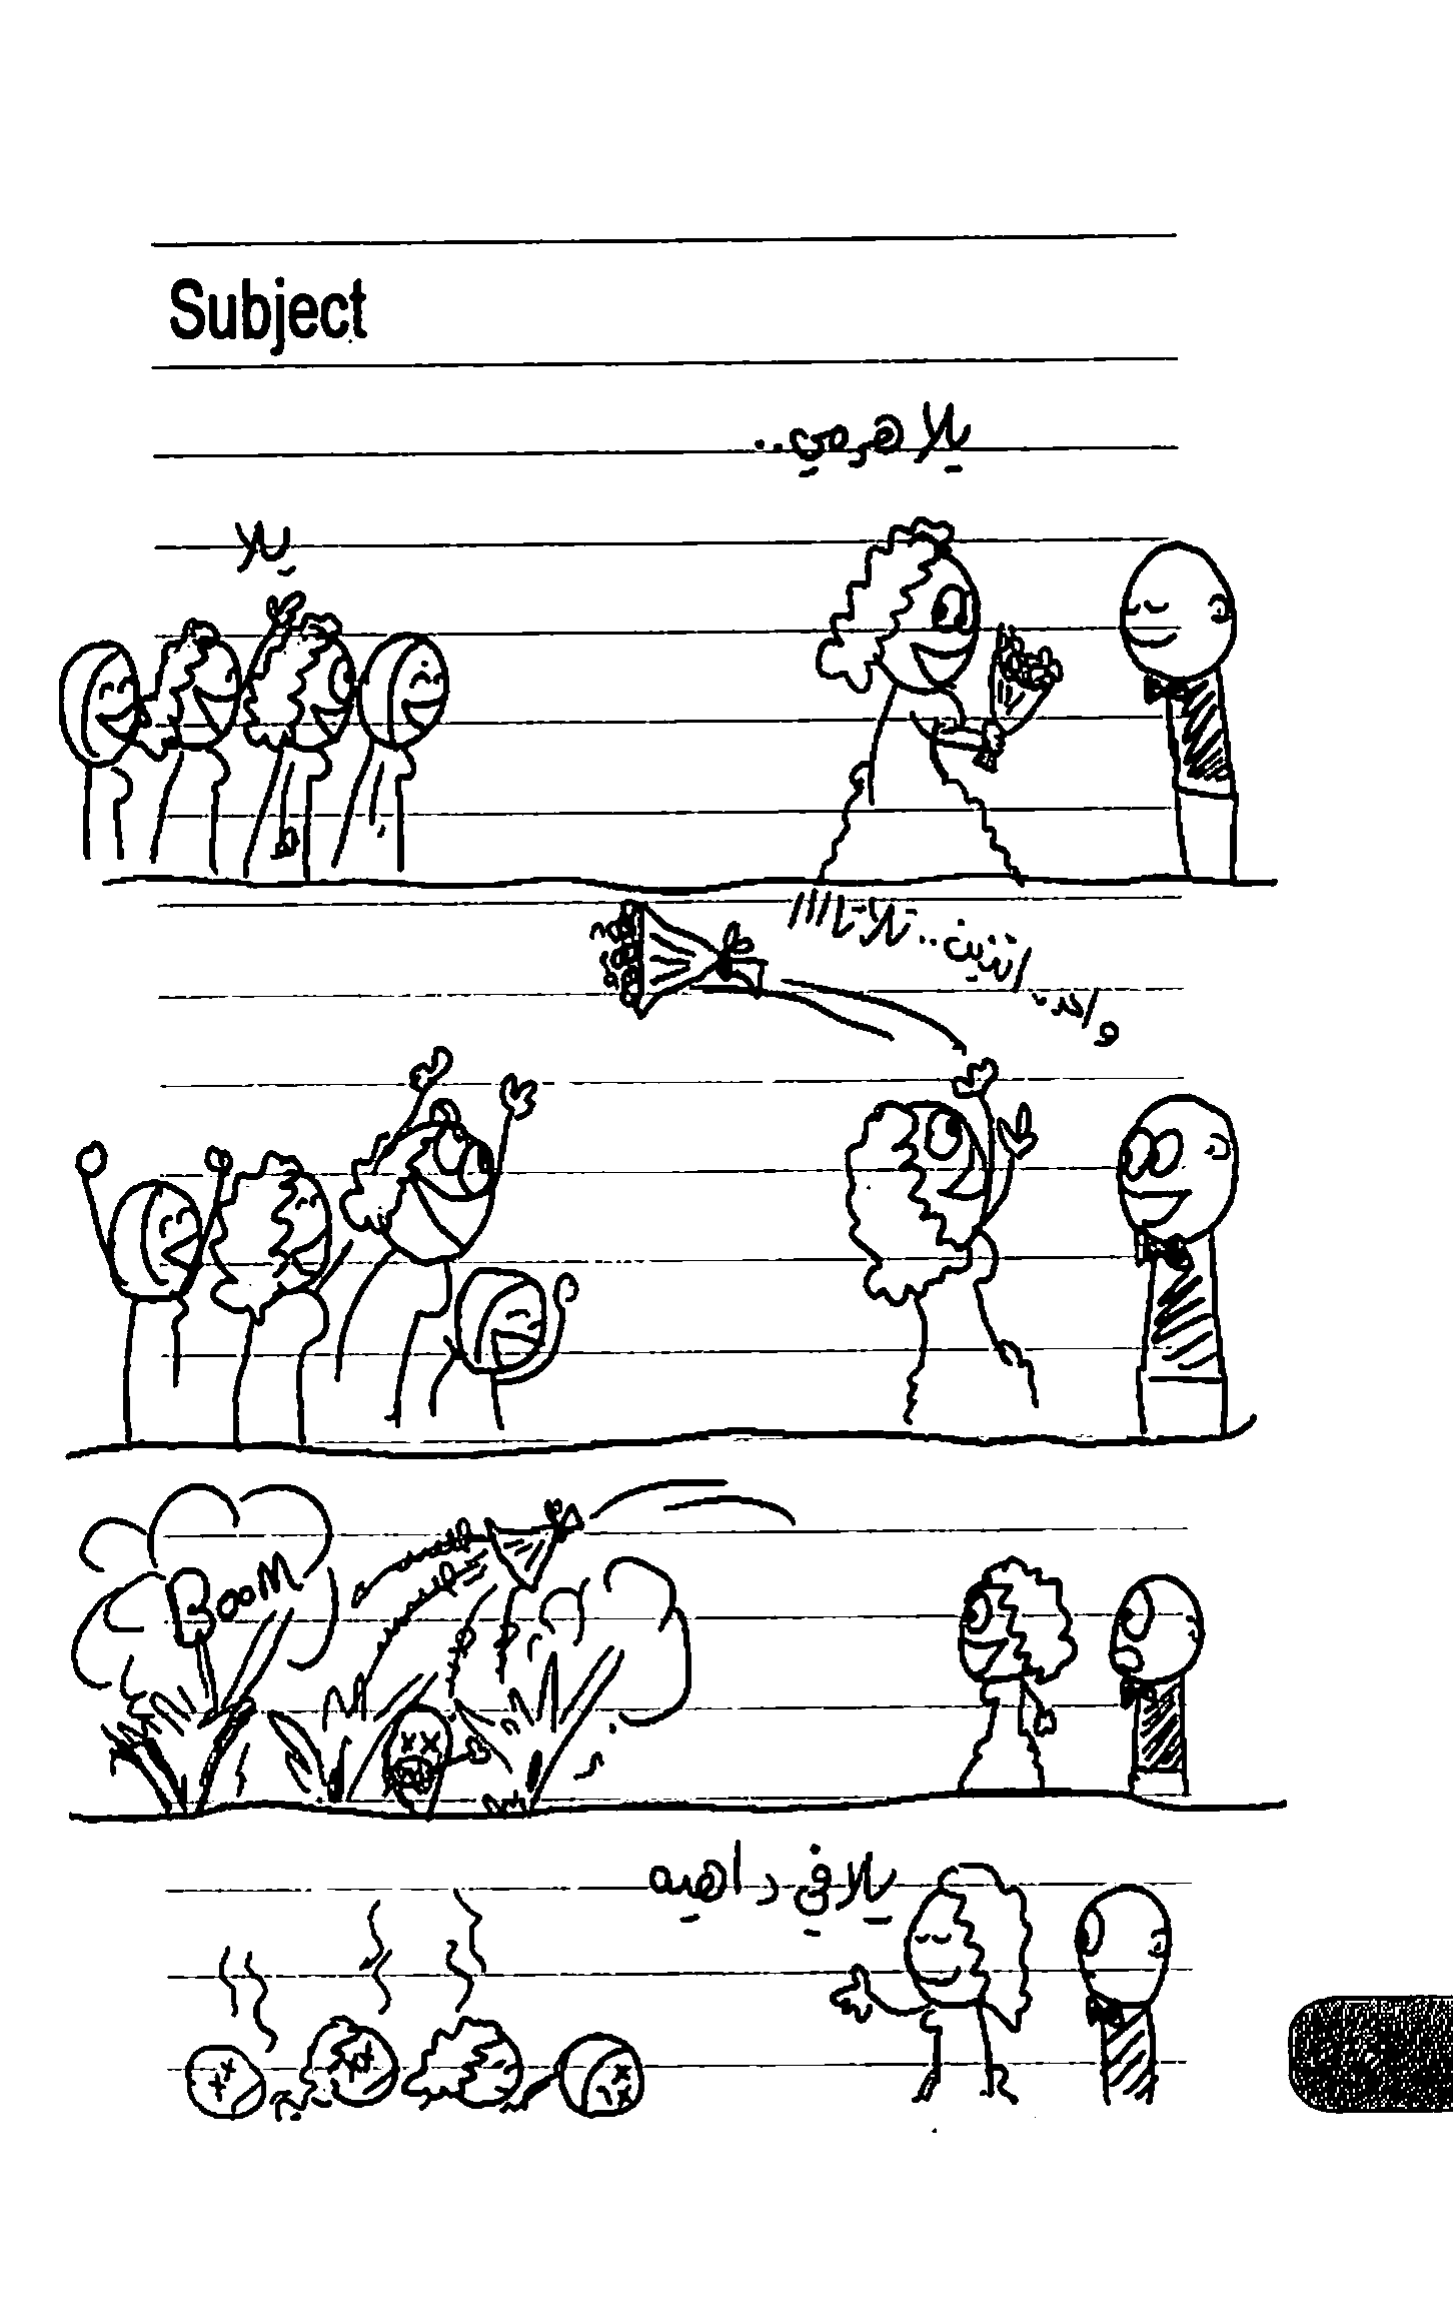 Subject
يلا هرمي..
يلا
واحد.. اتنين.. تلاتاااا
BOOM
يلا في داهيه